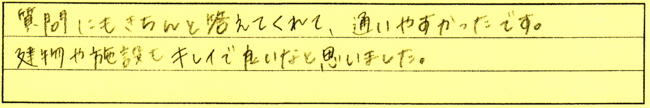 質問にもきちんと答えてくれて、通いやすかったです。
建物や施設もキレイで良いなと思いました。